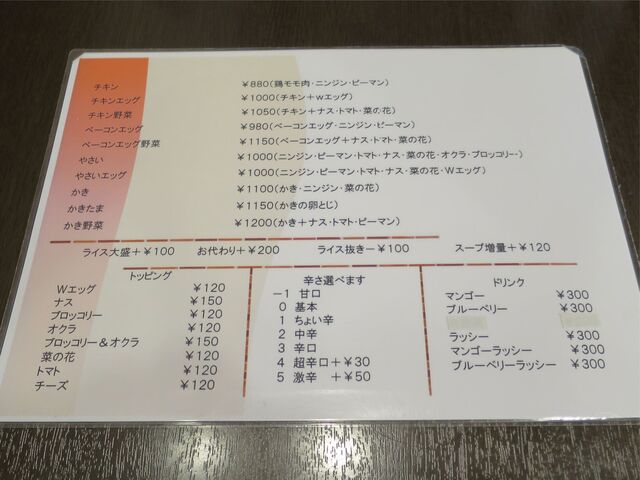 チキン ￥880(鶏モモ肉・ニンジン・ピーマン)
チキンエッグ ￥1000(チキン＋wエッグ)
チキン野菜 ￥1050(チキン＋ナス・トマト・菜の花)
ベーコンエッグ ￥980(ベーコンエッグ・ニンジン・ピーマン)
ベーコンエッグ野菜 ￥1150(ベーコンエッグ＋ナス・トマト・菜の花)
やさい ￥1000(ニンジン・ピーマン・トマト・ナス・菜の花・オクラ・ブロッコリー)
やさいエッグ ￥1000(ニンジン・ピーマン・トマト・ナス・菜の花・Wエッグ)
かき ￥1100(かき・ニンジン・菜の花)
かきたま ￥1150(かきの卵とじ)
かき野菜 ￥1200(かき＋ナス・トマト・ピーマン)
ライス大盛＋￥100 お代わり＋￥200 ライス抜き－￥100 スープ増量＋￥120
トッピング
Wエッグ ￥120
ナス ￥150
ブロッコリー ￥120
オクラ ￥120
ブロッコリー＆オクラ ￥150
菜の花 ￥120
トマト ￥120
チーズ ￥120
辛さ選べます
－1 甘口
0 基本
1 ちょい辛
2 中辛
3 辛口
4 超辛口＋￥30
5 激辛 ＋￥50
ドリンク
マンゴー ￥300
ブルーベリー ￥300
ラッシー ￥300
マンゴーラッシー ￥300
ブルーベリーラッシー ￥300